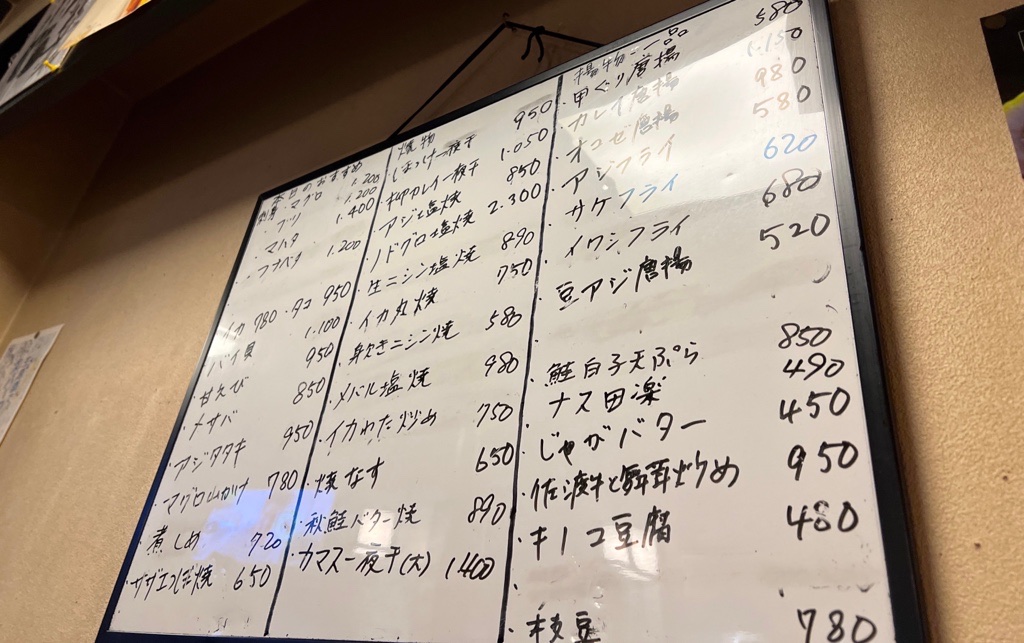 本日のおすすめ
刺身・マグロ 1.200
・ブリ 1.200
・マハタ 1.400
・フナベタ 1.200
・イカ 780 ・タコ 950
・バイ貝 1.100
・甘えび 950
・〆サバ 850
・アジタタキ 950
・マグロ山かけ 780
・煮しめ 720
・サザエつぼ焼 650
焼物
・しまほっけ一夜干 950
・柳カレイ一夜干 1.050
・アジ塩焼 850
・ノドグロ塩焼 2.300
・生ニシン塩焼 890
・イカ丸焼 750
・身欠きニシン焼 580
・メバル塩焼 980
・イカわた炒め 750
・焼なす 650
・秋鮭バター焼 890
・カマス一夜干(大) 1400
揚物・一品
・甲ぐり唐揚 580
・カレイ唐揚 1.150
・オコゼ唐揚 980
・アジフライ 580
・サケフライ 620
・イワシフライ 680
・豆アジ唐揚 520
・鮭白子天ぷら 850
・ナス田楽 490
・じゃがバター 450
・佐渡牛と舞茸炒め 950
・キノコ豆腐 480
・枝豆 780